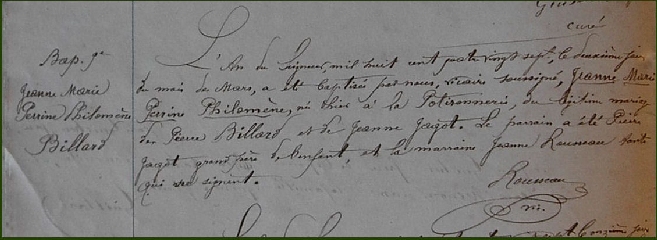 curé
Bap. 9e
Jeanne Marie
Perrine Philomène
Billard
L'An du Seigneur mil huit cent quatre vingt sept, le deuxième jour
du mois de Mars, a été baptisée par nous, vicaire soussigné, Jeanne Marie
Perrine Philomène, née hier à la Potironnerie, du légitime mariage
de Pierre Billard et de Jeanne Jagot. Le parrain a été Pierre
Jagot grand père de l'enfant, et la marraine Jeanne Rousseau tante
qui ne signent.
Rousseau
vic.